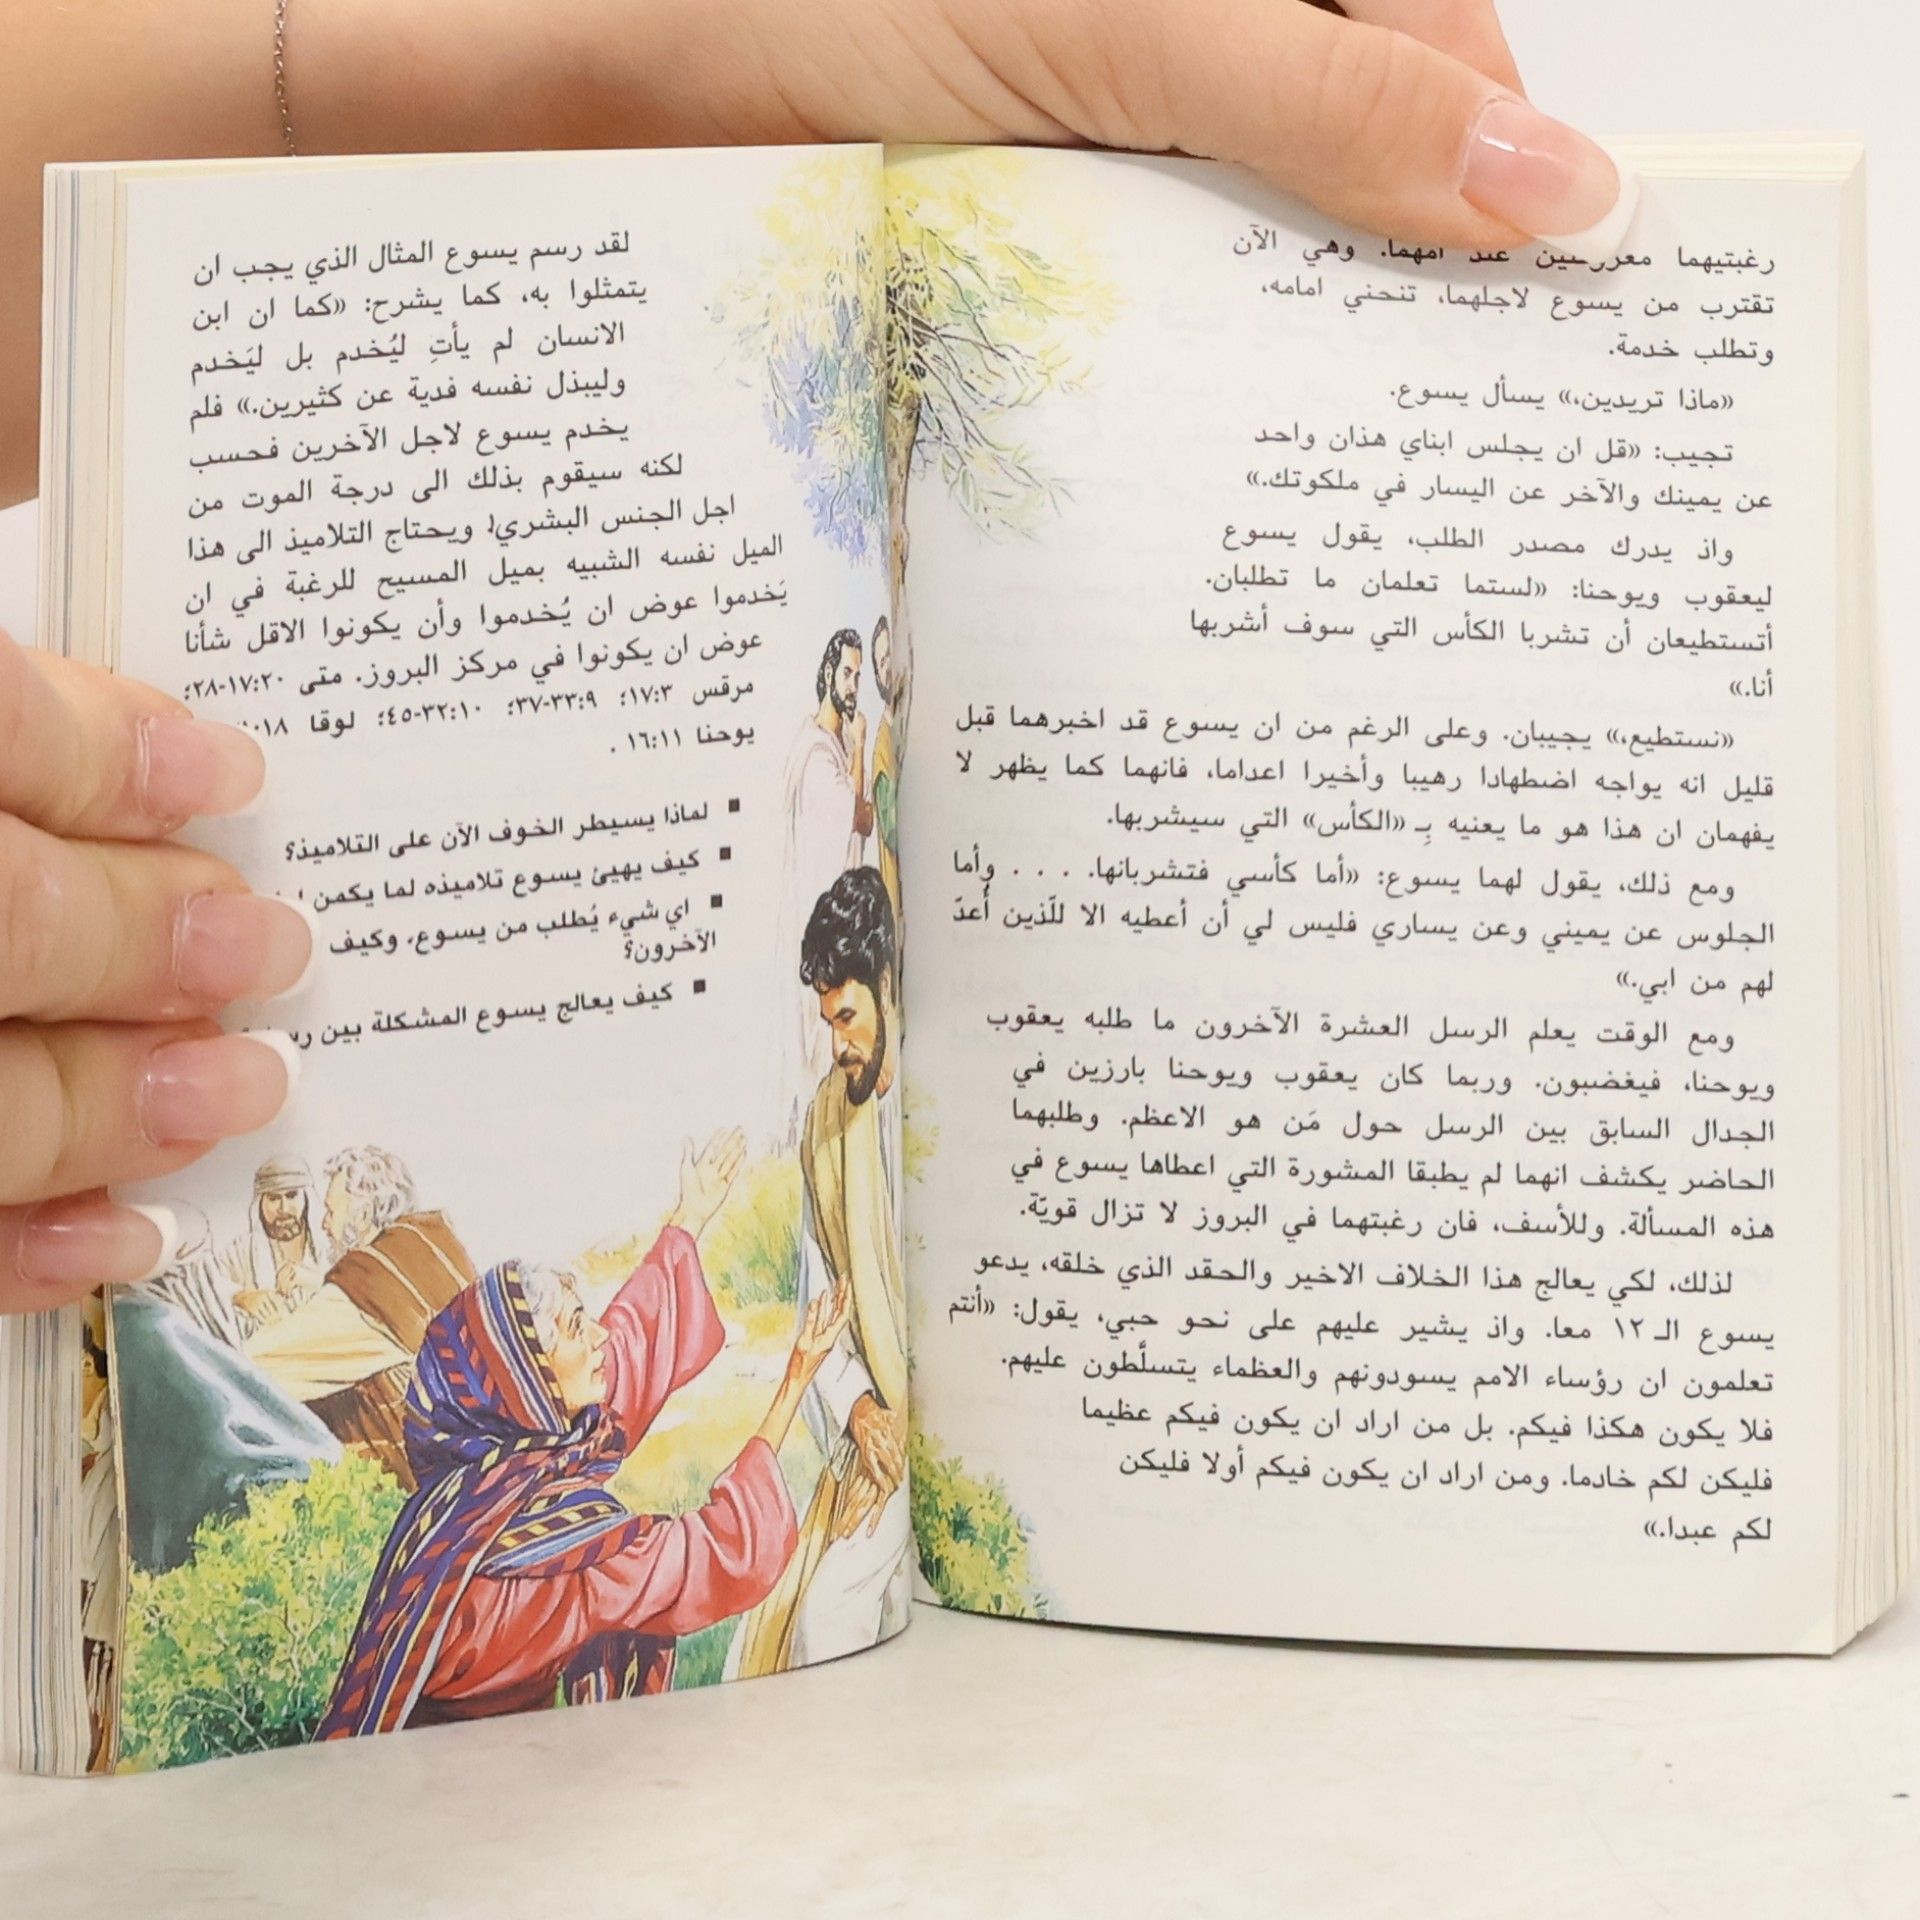 رغبتيهما عند امهما. وهي الآن
تقترب من يسوع لاجلهما، تنحني امامه،
وتطلب خدمة.
«ماذا تريدين،» يسأل يسوع.
تجيب: «قل ان يجلس ابناي هذان واحد
عن يمينك والآخر عن اليسار في ملكوتك.»
واذ يدرك مصدر الطلب، يقول يسوع
ليعقوب ويوحنا: «لستما تعلمان ما تطلبان.
أتستطيعان أن تشربا الكأس التي سوف أشربها
أنا.»
«نستطيع،» يجيبان. وعلى الرغم من ان يسوع قد اخبرهما قبل
قليل انه يواجه اضطهادا رهيبا وأخيرا اعداما، فانهما كما يظهر لا
يفهمان ان هذا هو ما يعنيه بِـ «الكأس» التي سيشربها.
ومع ذلك، يقول لهما يسوع: «أما كأسي فتشربانها. . . . وأما
الجلوس عن يميني وعن يساري فليس لي أن أعطيه الا للَّذين أُعدَّ
لهم من ابي.»
ومع الوقت يعلم الرسل العشرة الآخرون ما طلبه يعقوب
ويوحنا، فيغضبون. وربما كان يعقوب ويوحنا بارزين في
الجدال السابق بين الرسل حول مَن هو الاعظم. وطلبهما
الحاضر يكشف انهما لم يطبقا المشورة التي اعطاها يسوع في
هذه المسألة. وللأسف، فان رغبتهما في البروز لا تزال قويّة.
لذلك، لكي يعالج هذا الخلاف الاخير والحقد الذي خلقه، يدعو
يسوع الـ ١٢ معا. واذ يشير عليهم على نحو حبي، يقول: «أنتم
تعلمون ان رؤساء الامم يسودونهم والعظماء يتسلَّطون عليهم.
فلا يكون هكذا فيكم. بل من اراد ان يكون فيكم عظيما
فليكن لكم خادما. ومن اراد ان يكون فيكم أولا فليكن
لكم عبدا.»
لقد رسم يسوع المثال الذي يجب ان
يتمثلوا به، كما يشرح: «كما ان ابن
الانسان لم يأتِ ليُخدم بل ليَخدم
وليبذل نفسه فدية عن كثيرين.» فلم
يخدم يسوع لاجل الآخرين فحسب
لكنه سيقوم بذلك الى درجة الموت من
اجل الجنس البشري! ويحتاج التلاميذ الى هذا
الميل نفسه الشبيه بميل المسيح للرغبة في ان
يَخدموا عوض ان يُخدموا وأن يكونوا الاقل شأنا
عوض ان يكونوا في مركز البروز. متى ٢٠:١٧-٢٨؛
مرقس ٣:١٧؛ ٩:٣٣-٣٧؛ ١٠:٣٢-٤٥؛ لوقا
يوحنا ١١:١٦ .
▪ لماذا يسيطر الخوف الآن على التلاميذ؟
▪ كيف يهيئ يسوع تلاميذه لما يكمن
▪ اي شيء يُطلب من يسوع، وكيف
الآخرون؟
▪ كيف يعالج يسوع المشكلة بين